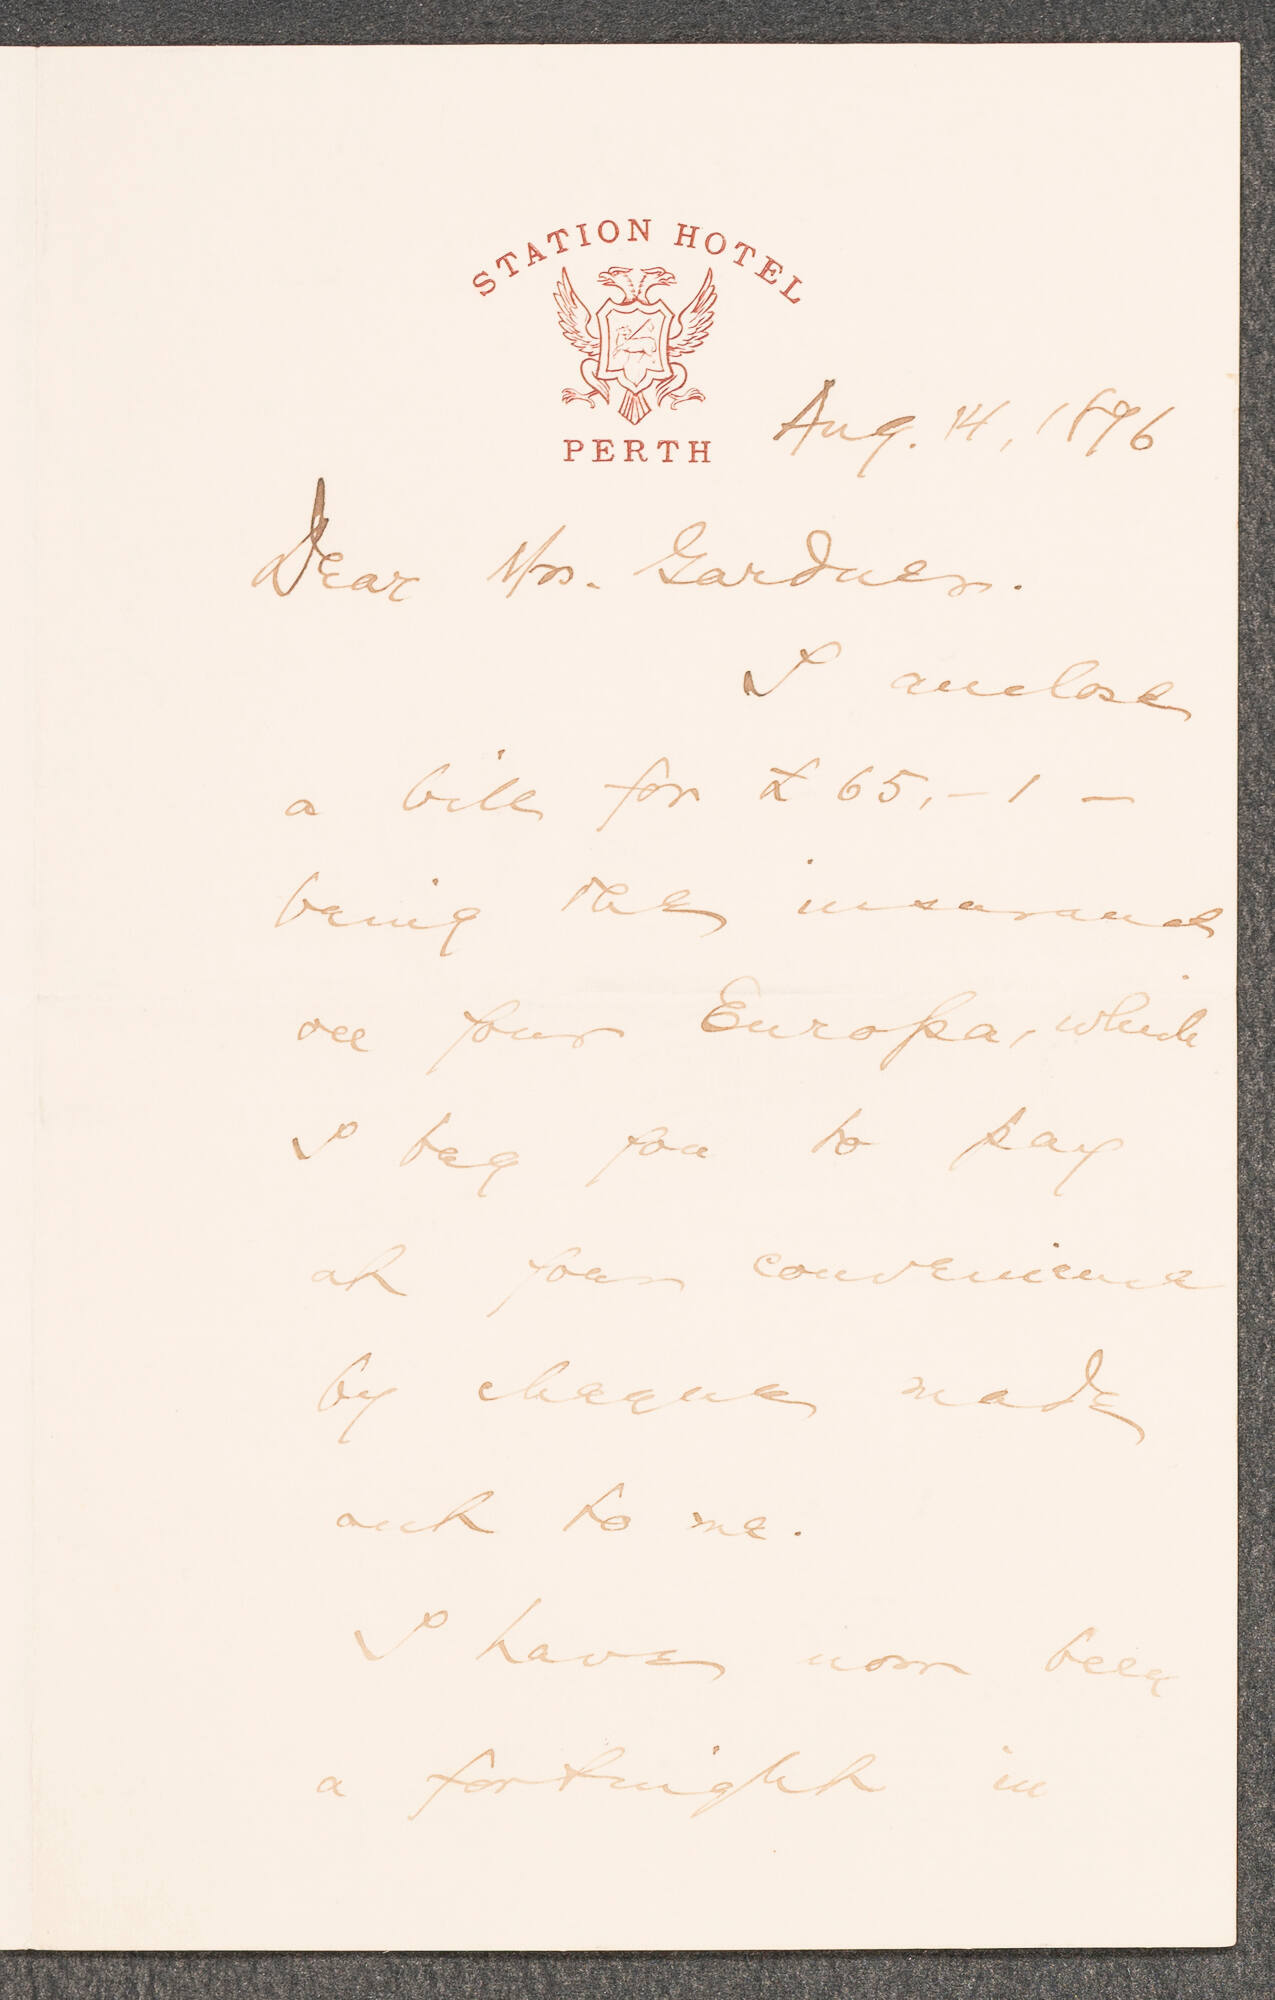 STATION HOTEL
PERTH
Aug. 14, 1896
Dear Mrs. Gardner.
I enclose
a bill for £65,-1-
being the insurance
on your Europa, which
I beg you to pay
at your convenience
by cheque made
out to me.
I have now been
a fortnight in